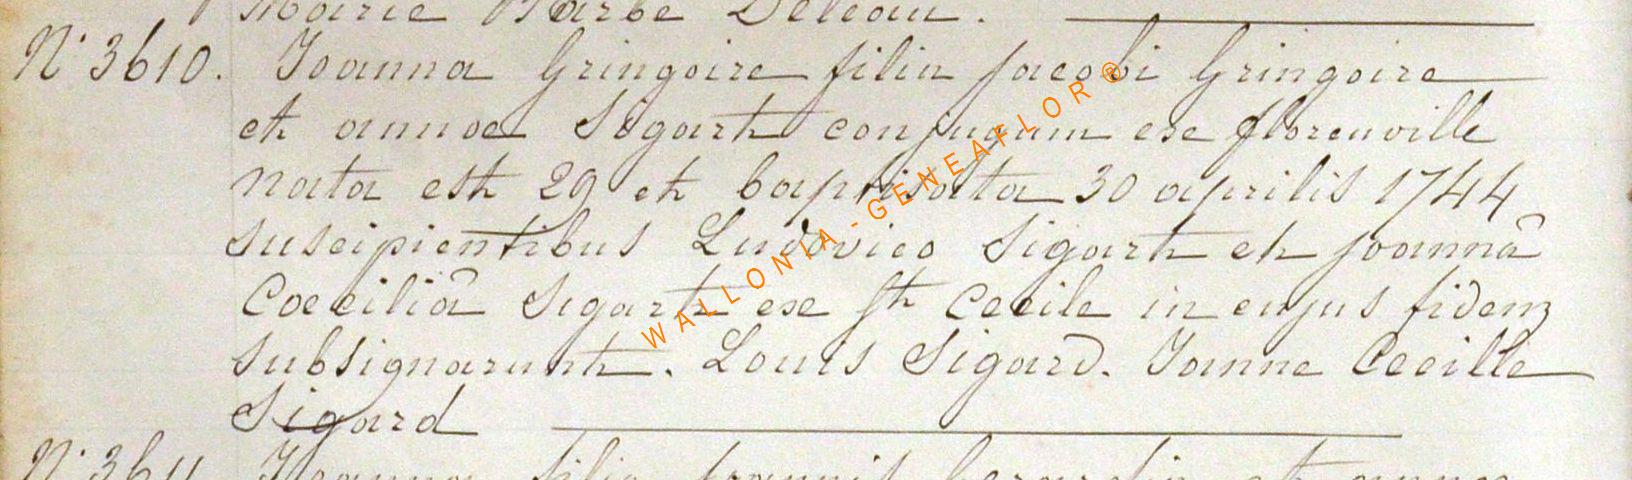 Marie Barbe Deleau.
N° 3610. Joanna Gringoire filia jacobi Gringoire
et annae Sigart conjugum ex florenville
nata est 29 et baptisata 30 aprilis 1744
suscipientibus Ludovico Sigart et joannâ
Coeciliâ Sigart ex St Cecile in cujus fidem
subsignarunt. Louis Sigard. Janne Cecille
Sigard
N° 3611 Joanna filia
WALLONIA-GENEAFLOR®